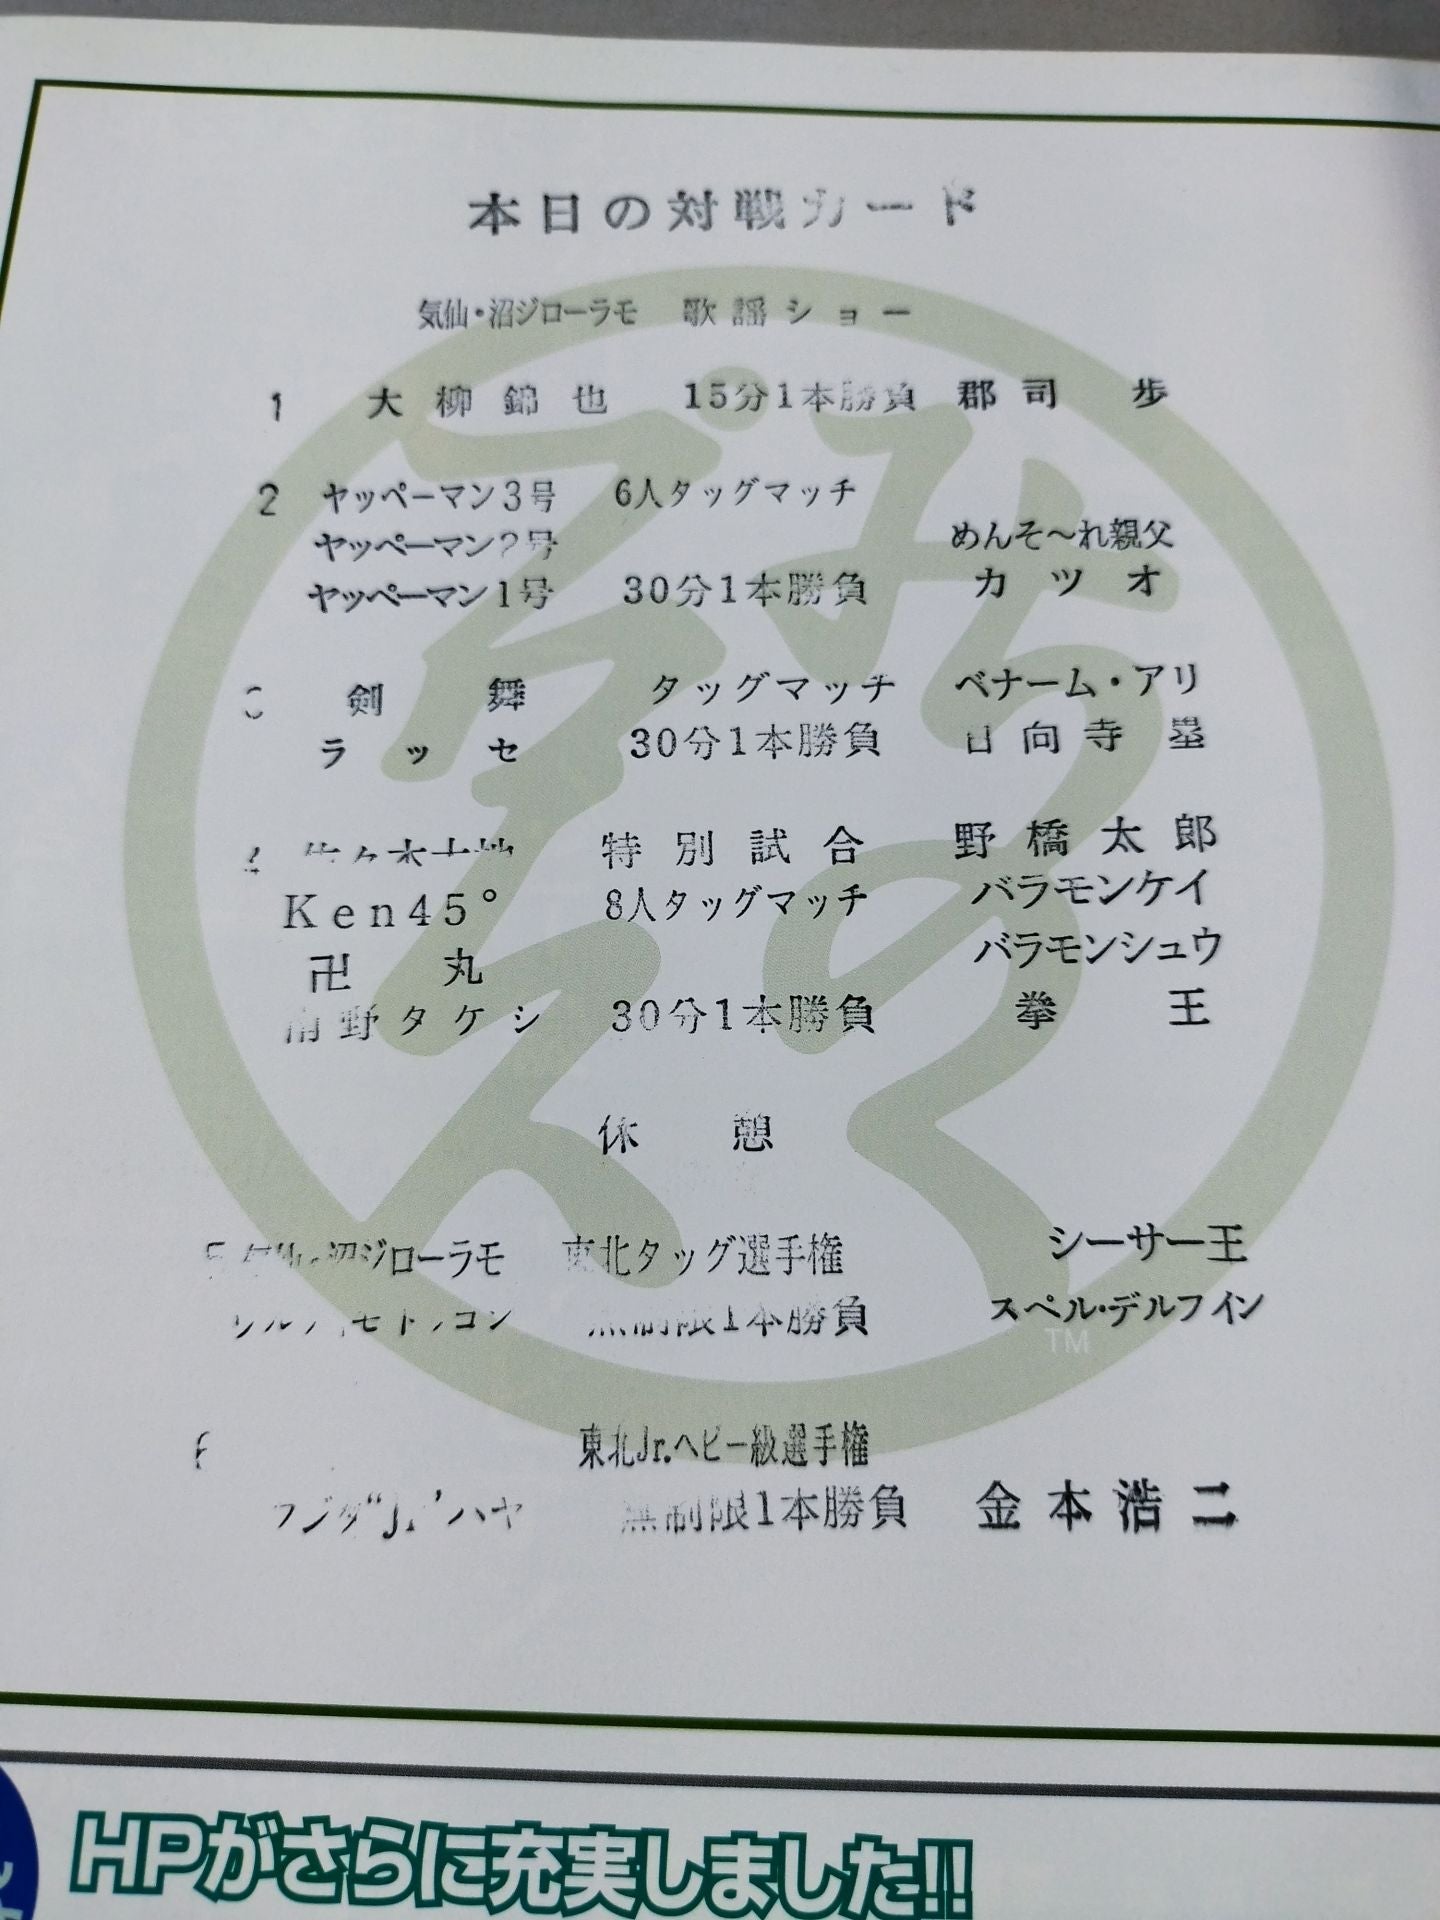 本日の対戦カード
気仙・沼ジローラモ 歌謡ショー
1 大柳錦也 15分1本勝負 郡司 歩
2 ヤッペーマン3号 6人タッグマッチ
ヤッペーマン2号 めんそ〜れ親父
ヤッペーマン1号 30分1本勝負 カツオ
剣舞 タッグマッチ ベナーム・アリ
ラッセ 30分1本勝負 日向寺塁
4 佐々木大地 特別試合 野橋太郎
Ken45° 8人タッグマッチ バラモンケイ
卍丸 バラモンシュウ
南野タケシ 30分1本勝負 拳王
休憩
5 気仙・沼ジローラモ 東北タッグ選手権 シーサー王
無制限1本勝負 スペル・デルフィン
東北Jr.ヘビー級選手権
フジタ"Jr"ハヤ 無制限1本勝負 金本浩二
TM
HPがさらに充実しました!!